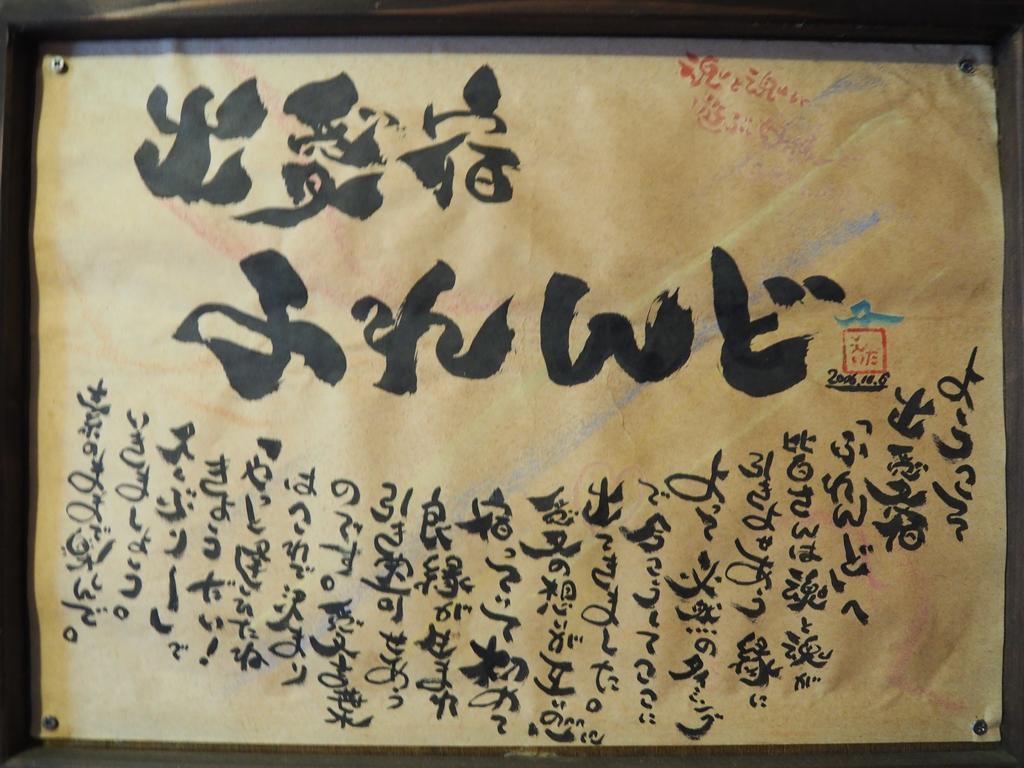 出愛宿
ふれんど
魂と魂が
遊ぶ
2006.10.6
ようこそ
出愛宿
「ふれんど」へ
皆さまは魂と魂が
ひきよせあう縁に
よって必然のタイミング
で今こうしてここに
出てきました。
想いが互いに
宿っていて初めて
良縁が生まれ
ひき寄せあう
のです。愛言葉
はこれで決まり
「やっと逢えたね
きょうだい!
で
いきましょう。